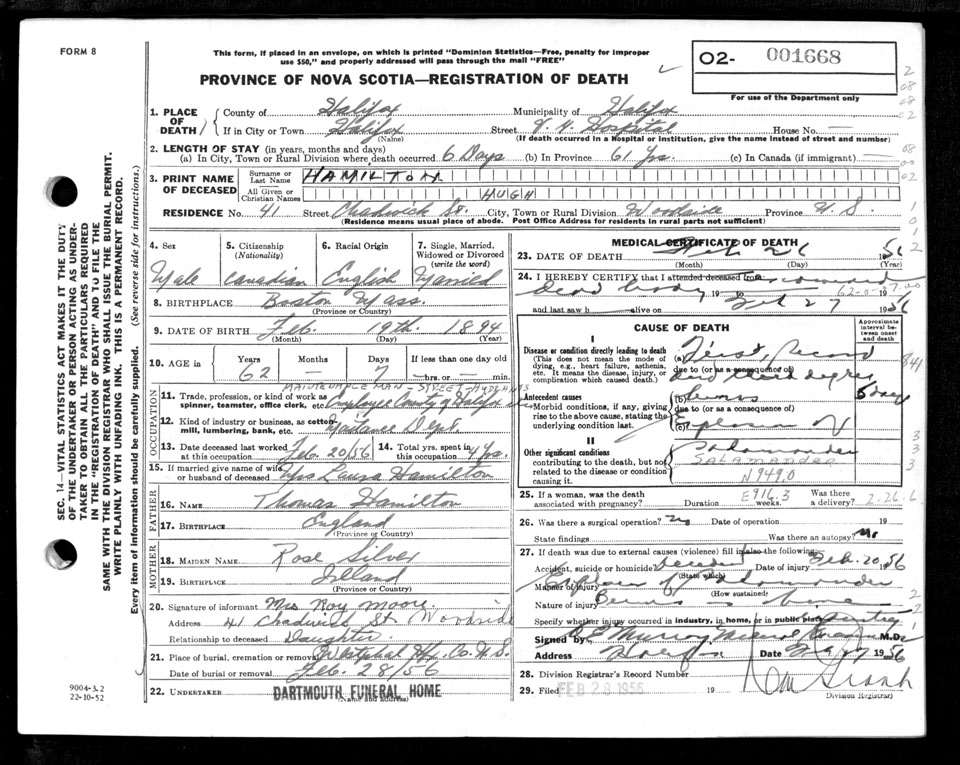 FORM 8
This form, if placed in an envelope, on which is printed "Dominion Statistics—Free, penalty for improper
use $50," and properly addressed will pass through the mail "FREE"
PROVINCE OF NOVA SCOTIA—REGISTRATION OF DEATH
O2- 001668
For use of the Department only
1. PLACE OF DEATH
County of Halifax Municipality of Halifax
If in City or Town Halifax Street V. G. Hospital House No. —
(Name) (If death occurred in a Hospital or Institution, give the name instead of street and number)
2. LENGTH OF STAY (in years, months and days)
(a) In City, Town or Rural Division where death occurred 6 Days (b) In Province 61 Yrs. (c) In Canada (if immigrant) —
3. PRINT NAME OF DECEASED
Surname or Last Name HAMILTON
All Given or Christian Names HUGH
RESIDENCE No. 41 Street Chadwick St. City, Town or Rural Division Woodside Province N. S.
(Residence means usual place of abode. Post Office Address for residents in rural parts not sufficient)
4. Sex
Male
5. Citizenship
(Nationality)
Canadian
6. Racial Origin
English
7. Single, Married,
Widowed or Divorced
(write the word)
Married
8. BIRTHPLACE Boston Mass.
(Province or Country)
9. DATE OF BIRTH Feb. 19th. 1894
(Month) (Day) (Year)
10. AGE in Years 62 Months — Days 7 If less than one day old
—hrs. or — min.
OCCUPATION
MAINTENANCE MAN - STREET - HYDRANTS
11. Trade, profession, or kind of work as
spinner, teamster, office clerk, etc. Employee County of Halifax
12. Kind of industry or business, as cotton-
mill, lumbering, bank, etc. Dept.
13. Date deceased last worked
at this occupation Feb. 20/56
14. Total yrs. spent in
this occupation 4 yrs.
15. If married give name of wife
or husband of deceased Mrs Laura Hamilton
FATHER
16. NAME Thomas Hamilton
17. BIRTHPLACE England
(Province or Country)
MOTHER
18. MAIDEN NAME Rose Silver
19. BIRTHPLACE
(Province or Country)
20. Signature of informant Mrs Roy Moore.
Address 41 Chadwick St Woodside
Relationship to deceased Daughter.
21. Place of burial, cremation or removal Westphal Hfx. Co. N. S.
Date of burial or removal Feb. 28/56
22. UNDERTAKER DARTMOUTH FUNERAL HOME
(Name and Address)
MEDICAL CERTIFICATE OF DEATH
23. DATE OF DEATH Feb 26 1956
(Month) (Day) (Year)
24. I HEREBY CERTIFY that I attended deceased from
dead body 19 to Feb 27 1956
and last saw h alive on 19
CAUSE OF DEATH
Approximate interval between onset and death
I
Disease or condition directly leading to death
(This does not mean the mode of
dying, e.g., heart failure, asthenia,
etc. It means the disease, injury, or
complication which caused death.)
(a) First, Second
due to (or as a consequence of)
and third degree
Antecedent causes
Morbid conditions, if any, giving
rise to the above cause, stating the
underlying condition last.
(b) burns
due to (or as a consequence of)
(c) Explosion of
II
Other significant conditions
contributing to the death, but not
related to the disease or condition
causing it.
Salamander
SALAMANDER
N949.0
E916.3
25. If a woman, was the death
associated with pregnancy? Duration weeks. Was there
a delivery?
26. Was there a surgical operation? No Date of operation 19
State findings Was there an autopsy? No
27. If death was due to external causes (violence) fill in also the following:
Accident, suicide or homicide? Accident Date of injury Feb. 20 1956
(State which)
Manner of injury Explosion of Salamander
(How sustained)
Nature of injury Burns
Specify whether injury occurred in industry, in home, or in public place
Signed by Murray M.D.
Address Halifax Date 1956
28. Division Registrar's Record Number
29. Filed FEB 28 1956 19
Division Registrar.
9004-3.2
22-10-52
SEC. 14—VITAL STATISTICS ACT MAKES IT THE DUTY
OF THE UNDERTAKER OR PERSON ACTING AS UNDER-
TAKER TO OBTAIN ALL THE PARTICULARS REQUIRED
IN THE "REGISTRATION OF DEATH" AND TO FILE THE
SAME WITH THE DIVISION REGISTRAR WHO SHALL ISSUE THE BURIAL PERMIT.
WRITE PLAINLY WITH UNFADING INK. THIS IS A PERMANENT RECORD.
Every item of information should be carefully supplied. (See reverse side for instructions.)